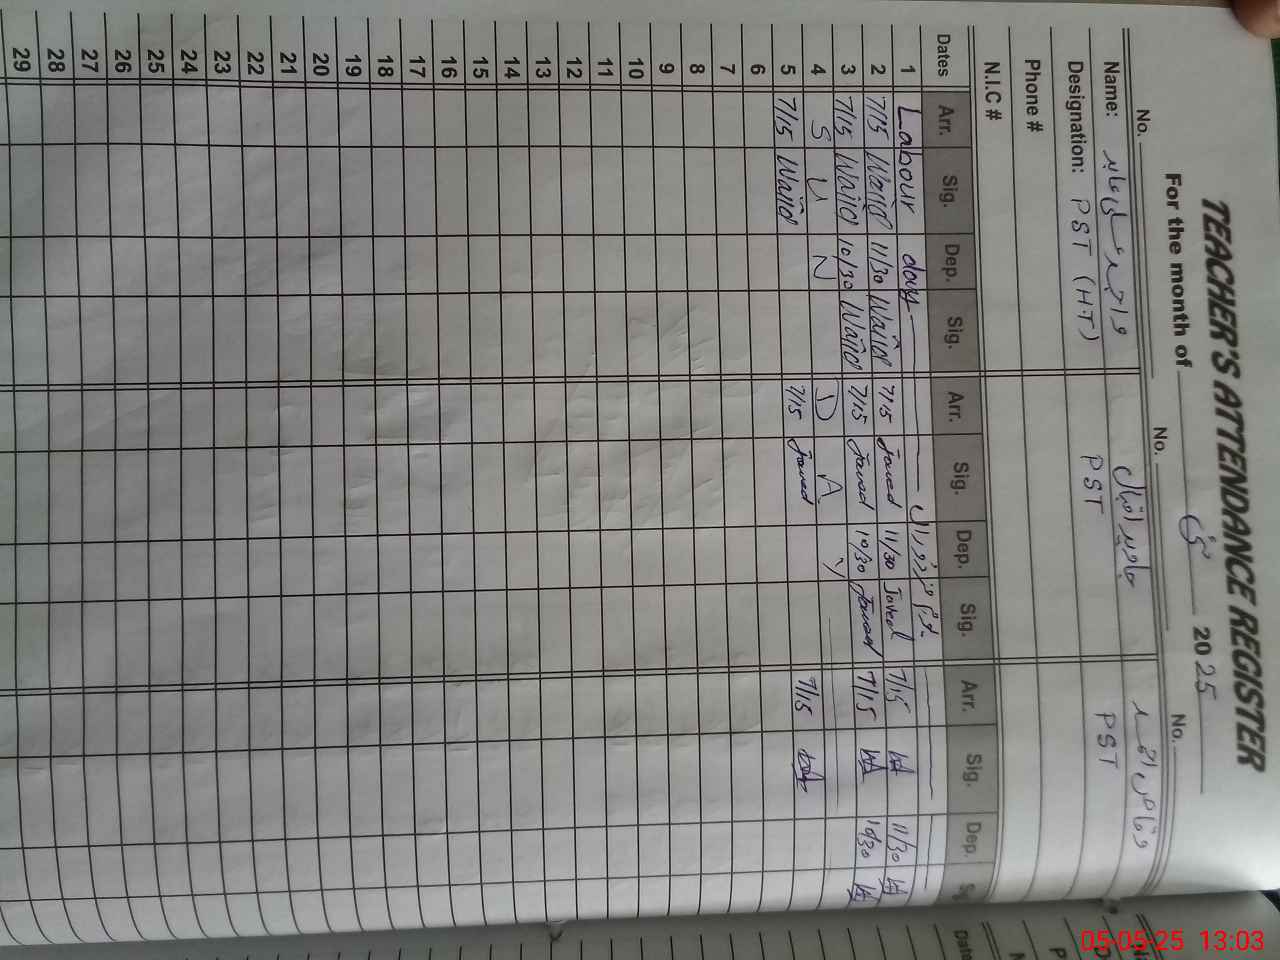 TEACHER'S ATTENDANCE REGISTER
For the month of مئی 2025
No. No. No.
Name: جاوید اقبال
Designation: PST (H.T) PST PST
Phone #
N.I.C #
Dates Arr. Sig. Dep. Sig. Arr. Sig. Dep. Sig. Arr. Sig. Dep.
1 Labour day
2 7/15 Wajid 11/30 Wajid 7/15 Javed 11/30 Javed 7/15 11/30
3 7/15 Wajid 10/30 Wajid 7/15 Javed 10/30 Javed 7/15 10/30
4 S U N D A Y
5 7/15 Wajid 7/15 Javed 7/15
6
7
8
9
10
11
12
13
14
15
16
17
18
19
20
21
22
23
24
25
26
27
28
29
05-05-25 13:03